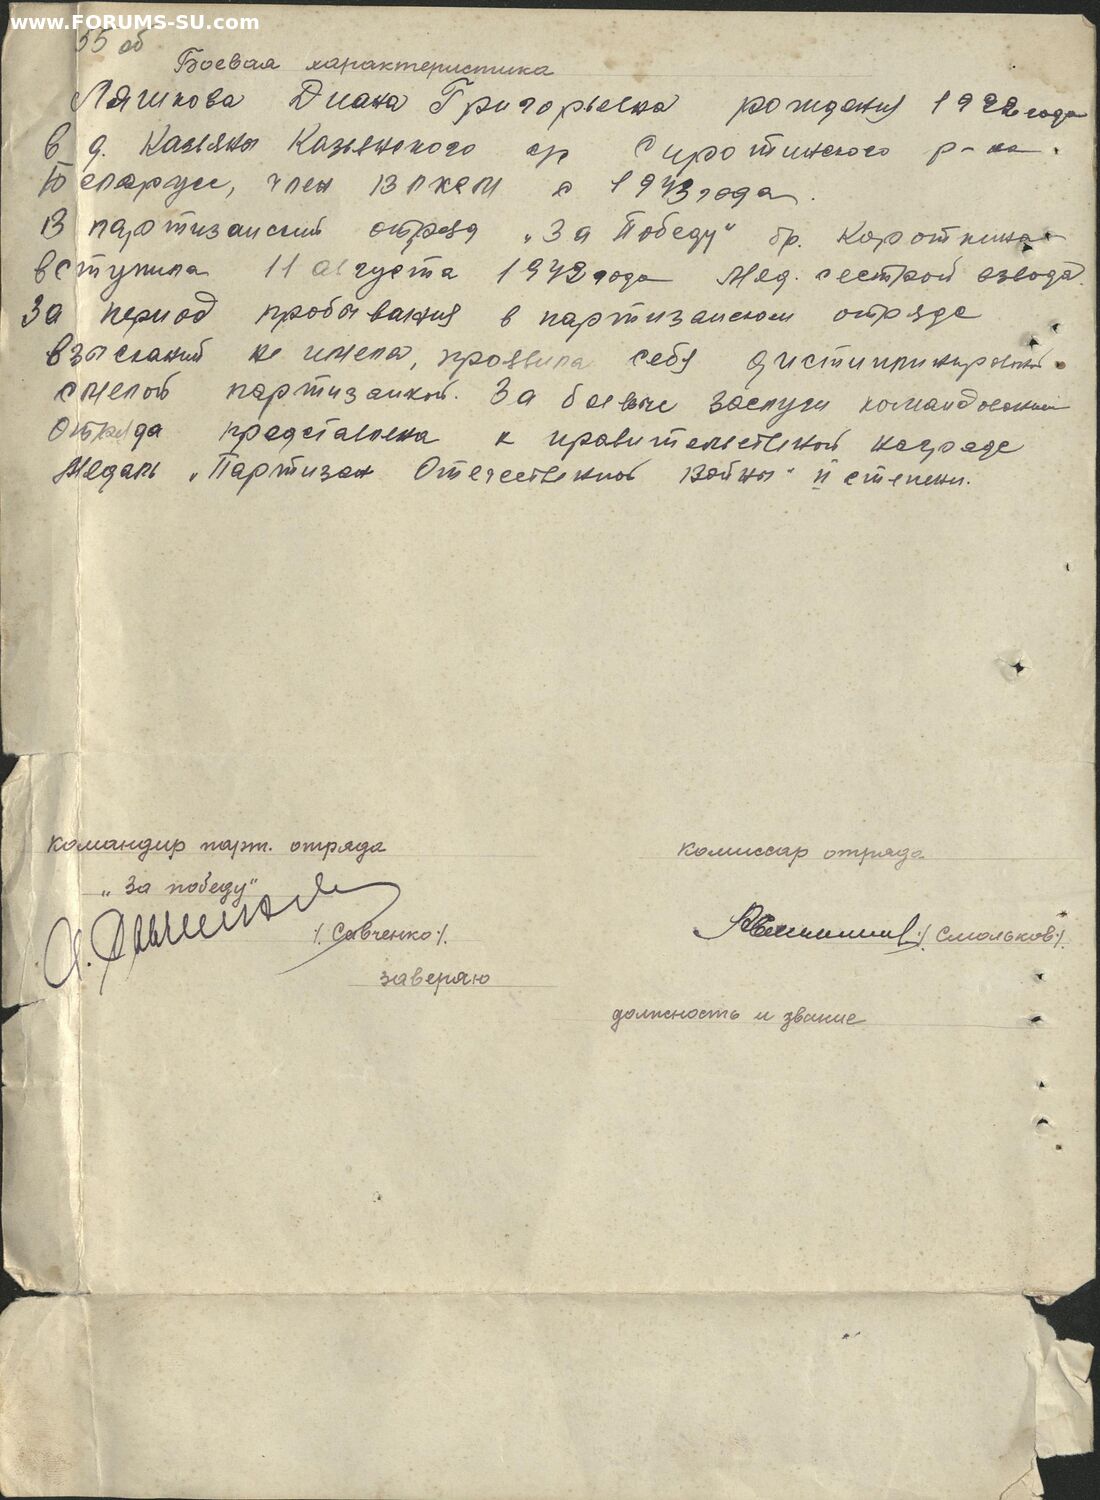 www.FORUMS-SU.com
55 об
Боевая характеристика
Ляшкова Диана Григорьевна рождения 1922 года
в д. Казьяны Казьянского с/с Сиротинского р-на.
Беларуси, член ВЛКСМ с 1943 года.
В партизанский отряд „За Победу" бр. Короткина
вступила 11 августа 1942 года Мед. сестрой взвода.
За период пробывания в партизанском отряде
взысканий не имела, проявила себя дистиплинированой
смелой партизанкой. За боевые заслуги командованием
Отряда представлена к правительственной награде
Медаль „Партизан Отечественной Войны" II степени.
Командир парт. отряда
„За победу"
/Савченко/.
заверяю
Комиссар отряда
/Смольков/.
должность и звание